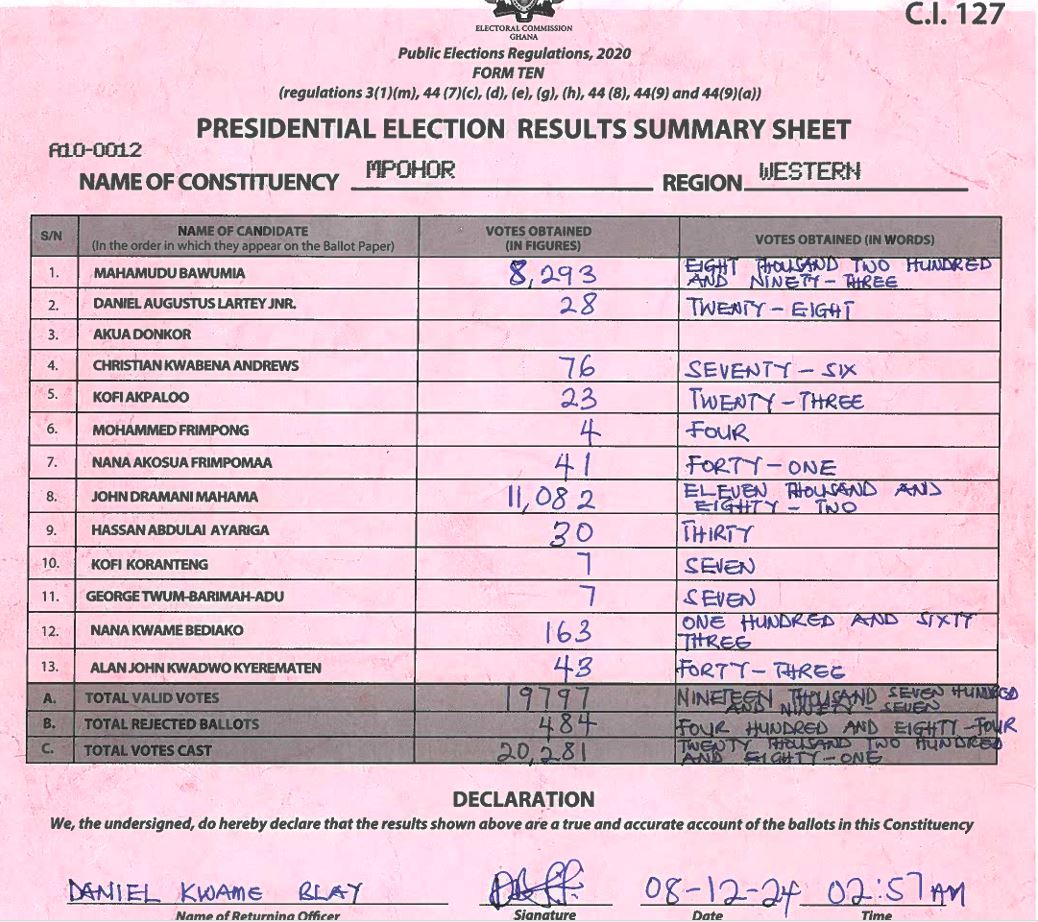 C.I. 127
ELECTORAL COMMISSION
GHANA
Public Elections Regulations, 2020
FORM TEN
(regulations 3(1)(m), 44 (7)(c), (d), (e), (g), (h), 44 (8), 44(9) and 44(9)(a))
PRESIDENTIAL ELECTION RESULTS SUMMARY SHEET
A10-0012
NAME OF CONSTITUENCY MPOHOR REGION WESTERN
S/N NAME OF CANDIDATE (In the order in which they appear on the Ballot Paper) VOTES OBTAINED (IN FIGURES) VOTES OBTAINED (IN WORDS)
1. MAHAMUDU BAWUMIA 8,293 EIGHT THOUSAND TWO HUNDRED AND NINETY-THREE
2. DANIEL AUGUSTUS LARTEY JNR. 28 TWENTY-EIGHT
3. AKUA DONKOR
4. CHRISTIAN KWABENA ANDREWS 76 SEVENTY-SIX
5. KOFI AKPALOO 23 TWENTY-THREE
6. MOHAMMED FRIMPONG 4 FOUR
7. NANA AKOSUA FRIMPOMAA 41 FORTY-ONE
8. JOHN DRAMANI MAHAMA 11,082 ELEVEN THOUSAND AND EIGHTY-TWO
9. HASSAN ABDULAI AYARIGA 30 THIRTY
10. KOFI KORANTENG 7 SEVEN
11. GEORGE TWUM-BARIMAH-ADU 7 SEVEN
12. NANA KWAME BEDIAKO 163 ONE HUNDRED AND SIXTY THREE
13. ALAN JOHN KWADWO KYEREMATEN 43 FORTY-THREE
A. TOTAL VALID VOTES 19797 NINETEEN THOUSAND SEVEN HUNDRED AND NINETY-SEVEN
B. TOTAL REJECTED BALLOTS 484 FOUR HUNDRED AND EIGHTY-FOUR
C. TOTAL VOTES CAST 20,281 TWENTY THOUSAND TWO HUNDRED AND EIGHTY-ONE
DECLARATION
We, the undersigned, do hereby declare that the results shown above are a true and accurate account of the ballots in this Constituency
DANIEL KWAME BLAY 08-12-24 02:57AM
Name of Returning Officer Signature Date Time